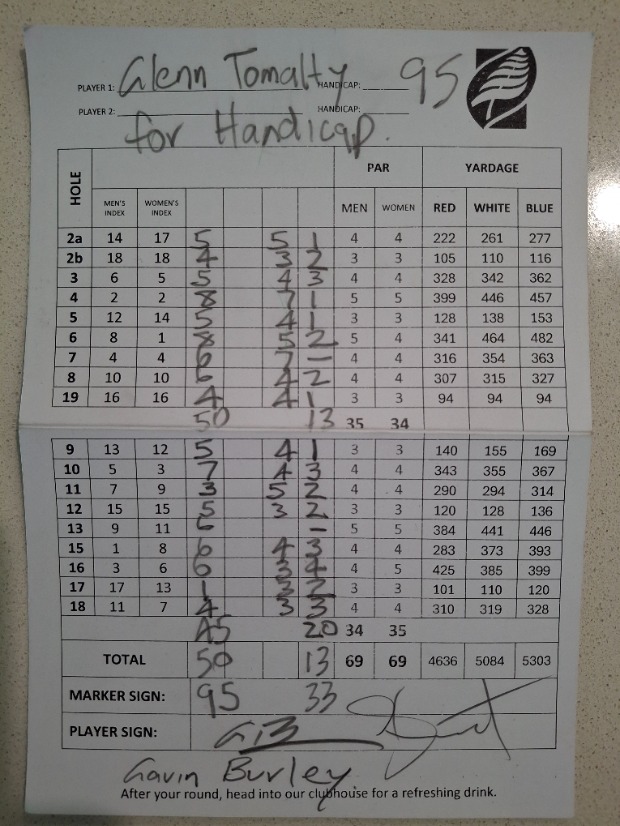 PLAYER 1: Glenn Tomalty HANDICAP: 95
PLAYER 2: HANDICAP:
for Handicap.
PAR YARDAGE
HOLE MEN'S INDEX WOMEN'S INDEX MEN WOMEN RED WHITE BLUE
2a 14 17 5 5 1 4 4 222 261 277
2b 18 18 4 3 2 3 3 105 110 116
3 6 5 5 4 3 4 4 328 342 362
4 2 2 8 7 1 5 5 399 446 457
5 12 14 5 4 1 3 3 128 138 153
6 8 1 8 5 2 5 4 341 464 482
7 4 4 6 7 – 4 4 316 354 363
8 10 10 6 4 2 4 4 307 315 327
19 16 16 4 4 1 3 3 94 94 94
50 13 35 34
9 13 12 5 4 1 3 3 140 155 169
10 5 3 7 4 3 4 4 343 355 367
11 7 9 3 5 2 4 4 290 294 314
12 15 15 5 3 2 3 3 120 128 136
13 9 11 6 – 5 5 384 441 446
15 1 8 6 4 3 4 4 283 373 393
16 3 6 6 3 4 4 5 425 385 399
17 17 13 1 3 2 3 3 101 110 120
18 11 7 4 3 3 4 4 310 319 328
45 20 34 35
TOTAL 50 13 69 69 4636 5084 5303
MARKER SIGN: 95 33
PLAYER SIGN: GB
Gavin Burley
After your round, head into our clubhouse for a refreshing drink.